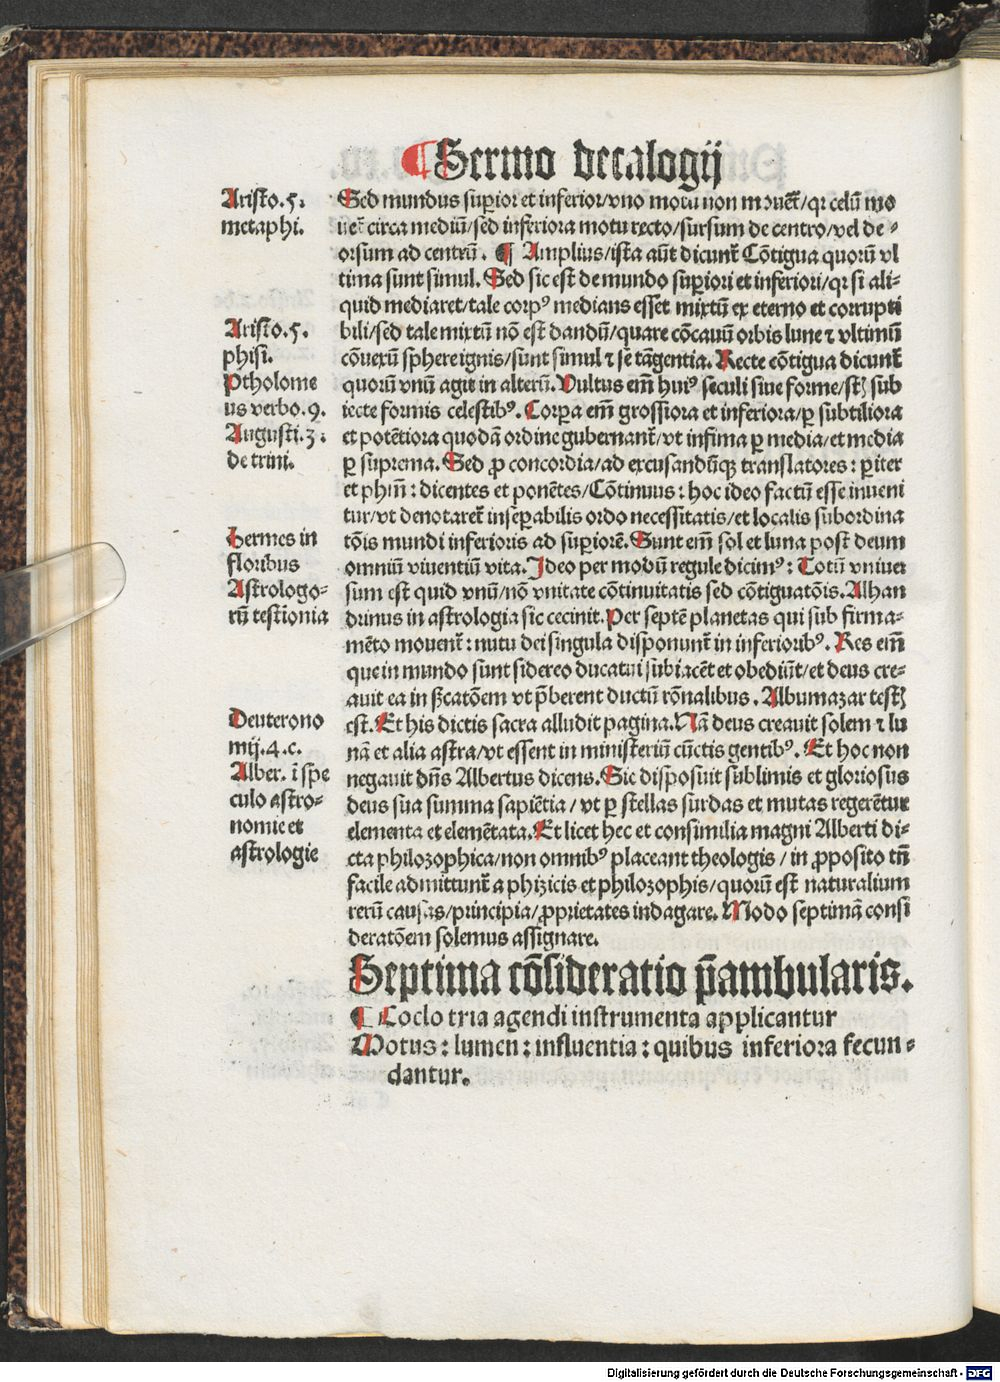 ¶ Sermo decalogij
Aristo.5.
metaphi.
Sed mundus supior et inferior/vno motu non mouet̄/qr celū mo
uet̄ circa mediū/sed inferiora motu recto/sursum de centro/vel de-
orsum ad centrū. ¶ Amplius/ista aūt dicunt̄ Cōtigua quorū vl
tima sunt simul. Sed sic est de mundo supiori et inferiori/qr si ali-
quid mediaret/tale corpꝰ medians esset mixtū ex eterno et corrupti
Aristo.5.
phisi.
bili/sed tale mixtū nō est dandū/quare cōcauū orbis lune ⁊ vltimū
cōuexū sphere ignis/sunt simul ⁊ se tāgentia. Recte cōtigua dicunt̄
Ptholome
us verbo.9.
quorū vnū agit in alterū. Vultus em̄ huiꝰ seculi siue forme/st̄ sub
iecte formis celestibꝰ. Corpa em̄ grossiora et inferiora/ꝑ subtiliora
Augusti.3.
de trini.
et potētiora quodā ordine gubernant̄/vt infima ꝑ media/et media
ꝑ suprema. Sed ꝓ concordia/ad excusandūqꝫ translatores: ꝑiter
et phm̄: dicentes et ponētes/Cōtinuus: hoc ideo factū esse inueni
tur/vt denotaret̄ insepabilis ordo necessitatis/et localis subordina
Hermes in
floribus
Astrologo-
rū testionia
tōis mundi inferioris ad supiorē. Sunt em̄ sol et luna post deum
omniū viuentiū vita. Ideo per modū regule dicimꝰ: Totū vniuer
sum est quid vnū/nō vnitate cōtinuitatis sed cōtiguatōis. Alhan
drinus in astrologia sic cecinit. Per septē planetas qui sub firma-
mēto mouent̄: nutu dei singula disponunt̄ in inferioribꝰ. Res em̄
que in mundo sunt sidereo ducatui subiacēt et obediūt/et deus cre-
auit ea in s̄catōem vt p̄berent ductū rōnalibus. Albumazar testꝭ
Deuterono
mij.4.c.
est. Et his dictis sacra alludit pagina. Nā deus creauit solem ⁊ lu
nā et alia astra/vt essent in ministeriū cūctis gentibꝰ. Et hoc non
Alber. ī spe
culo astro-
nomie et
astrologie
negauit dn̄s Albertus dicens. Sic disposuit sublimis et gloriosus
deus sua summa sapiētia/vt ꝑ stellas surdas et mutas regerētur
elementa et elemētata. Et licet hec et consimilia magni Alberti di-
cta philozophica/non omnibꝰ placeant theologis/in ꝓposito tn̄
facile admittunt̄ a phizicis et philozophis/quorū est naturalium
rerū causas/principia/ꝓprietates indagare. Modo septimā consi
deratōem solemus assignare.
Septima cōsideratio p̄ambularis.
¶ Coelo tria agendi instrumenta applicantur
Motus: lumen: influentia: quibus inferiora fecun-
dantur.
Digitalisierung gefördert durch die Deutsche Forschungsgemeinschaft - DFG